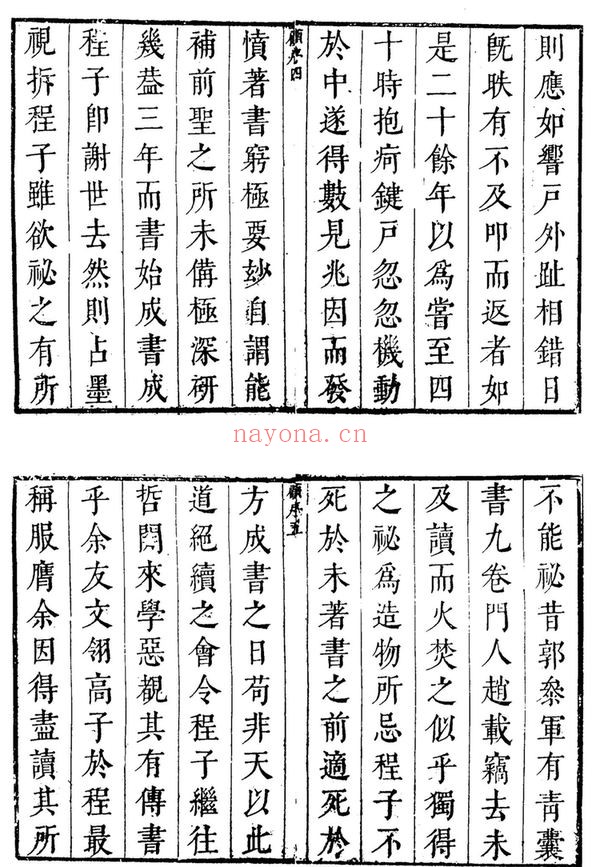 則應如響戶外趾相錯日
旣昳有不及叩而返者如
是二十餘年以爲嘗至四
十時抱疴鍵戶忽忽機動
於中遂得數見兆因而發
顧序四
憤著書窮極要玅自謂能
補前聖之所未備極深研
幾葢三年而書始成書成
程子卽謝世去然則占墨
視拆程子雖欲祕之有所
nayona.cn
不能祕昔郭叅軍有靑囊
書九卷門人趙載竊去未
及讀而火焚之似乎獨得
之祕爲造物所忌程子不
死於未著書之前適死於
顧序五
方成書之日苟非天以此
道絕續之會令程子繼往
哲開來學惡覩其有傳書
乎余友文翎高子於程最
稱服膺余因得盡讀其所